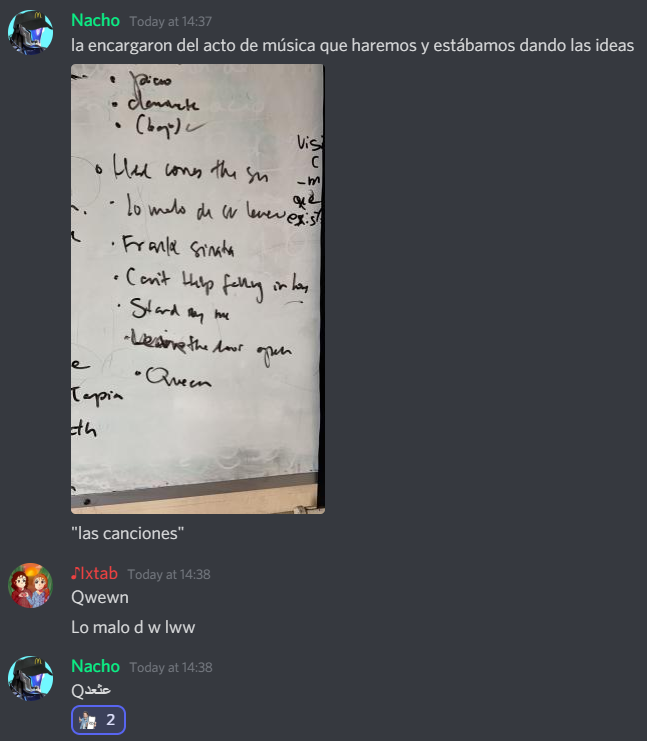 Nacho Today at 14:37
la encargaron del acto de música que haremos y estábamos dando las ideas
• piano
• (bajo) ✓
• Here comes the sun
• Lo malo de
• Frank Sinatra
• Can't Help falling in love
• Stand by me
• Leaving the door open
• Queen
Visi
C
-m
que
exist
e
Tapia
th
"las canciones"
♪Ixtab Today at 14:38
Qwewn
Lo malo d w lww
Nacho Today at 14:38
Qعثعد
2